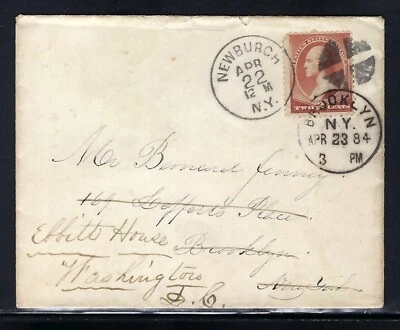 NEWBURGH
APR
22
12 M
N.Y.
TWO CENTS
BROOKLYN
N.Y.
APR 23 84
3 PM
Mr Bernard
169 Lefferts Place
Ebbitt House Brooklyn
Washington
D.C.